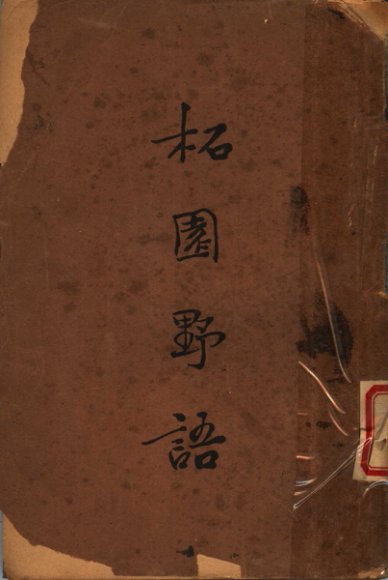 柘園野語